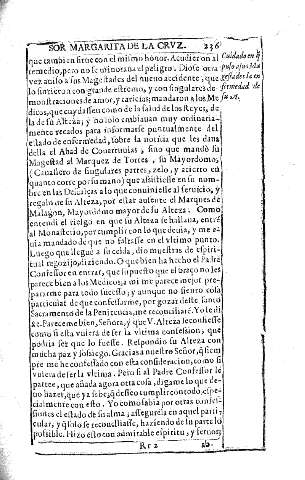 SOR MARGARITA DE LA CRVZ. 236
que tambien sirue con el mismo honor. Acudieron al
remedio, pero no se minoraua el peligro. Diose otra
vez auiso a sus Magestades del nueuo accidente; que
lo sintieron con grande estremo, y con singulares de
monstraciones de amor, y caricias; mandaron a los Me
dicos, que cuydassen como de la salud de los Reyes, de
la de su Alteza; y no solo embiauan muy ordinaria-
mente recados para informarse puntualmente del
estado de enfermedad, sobre la noticia que les daua
della el Abad de Couarruuias, sino que mandò su
Magestad al Marques de Torres, su Mayordomo,
(Cauallero de singulares partes, zelo, y acierto en
quanto corre por su mano) que assistiesse en su nom-
bre en las Descalças a lo que conuiniesse al seruicio, y
regalo de su Alteza, por estar ausente el Marques de
Malagon, Mayordomo mayor de su Alteza. Como
entendi el riesgo en que su Alteza se hallaua, entrè
al Monasterio, por cumplir con lo que deuia, y me es
taua mandado de que no faltasse en el vltimo punto.
Luego que lleguè a su celda, dio muestras de espiri-
tual regozijo, diziendo. O que bien ha hecho el Padre
Confessor en entrar, que supuesto que el braço no les
parece bien a los Medicos; a mi me parece mejor pre-
pararme para todo sucesso; y aunque no siento cosa
particular de que confessarme, por gozar deste santo
Sacramento de la Penitencia, me reconciliarè. Yo le di
xe. Pareceme bien, Señora, y que V. Alteza se confiesse
como si esta vuiera de ser la vltima confesion, que
podria ser que lo fuesse. Respondio su Alteza con
mucha paz y sosiego. Gracias a nuestro Señor, q̃ siem
pre me he confessado con esta consideracion, como si
vuiera de ser la vltima. Pero si al Padre Confessor le
parece, que añada agora otra cosa, digame lo que de-
uo hazer, que ya sabe, q̃ desseo cumplir con todo, espe-
cialmente con esto. Yo como sabia por otras confes-
siones el estado de su alma; assegurela en aquel parti-
cular, y q̃ solo se reconciliasse, haziendo de su parte lo
possible. Hizo esto con admirable espiritu, y feruor;
Rr 2
Cuidado en q̃